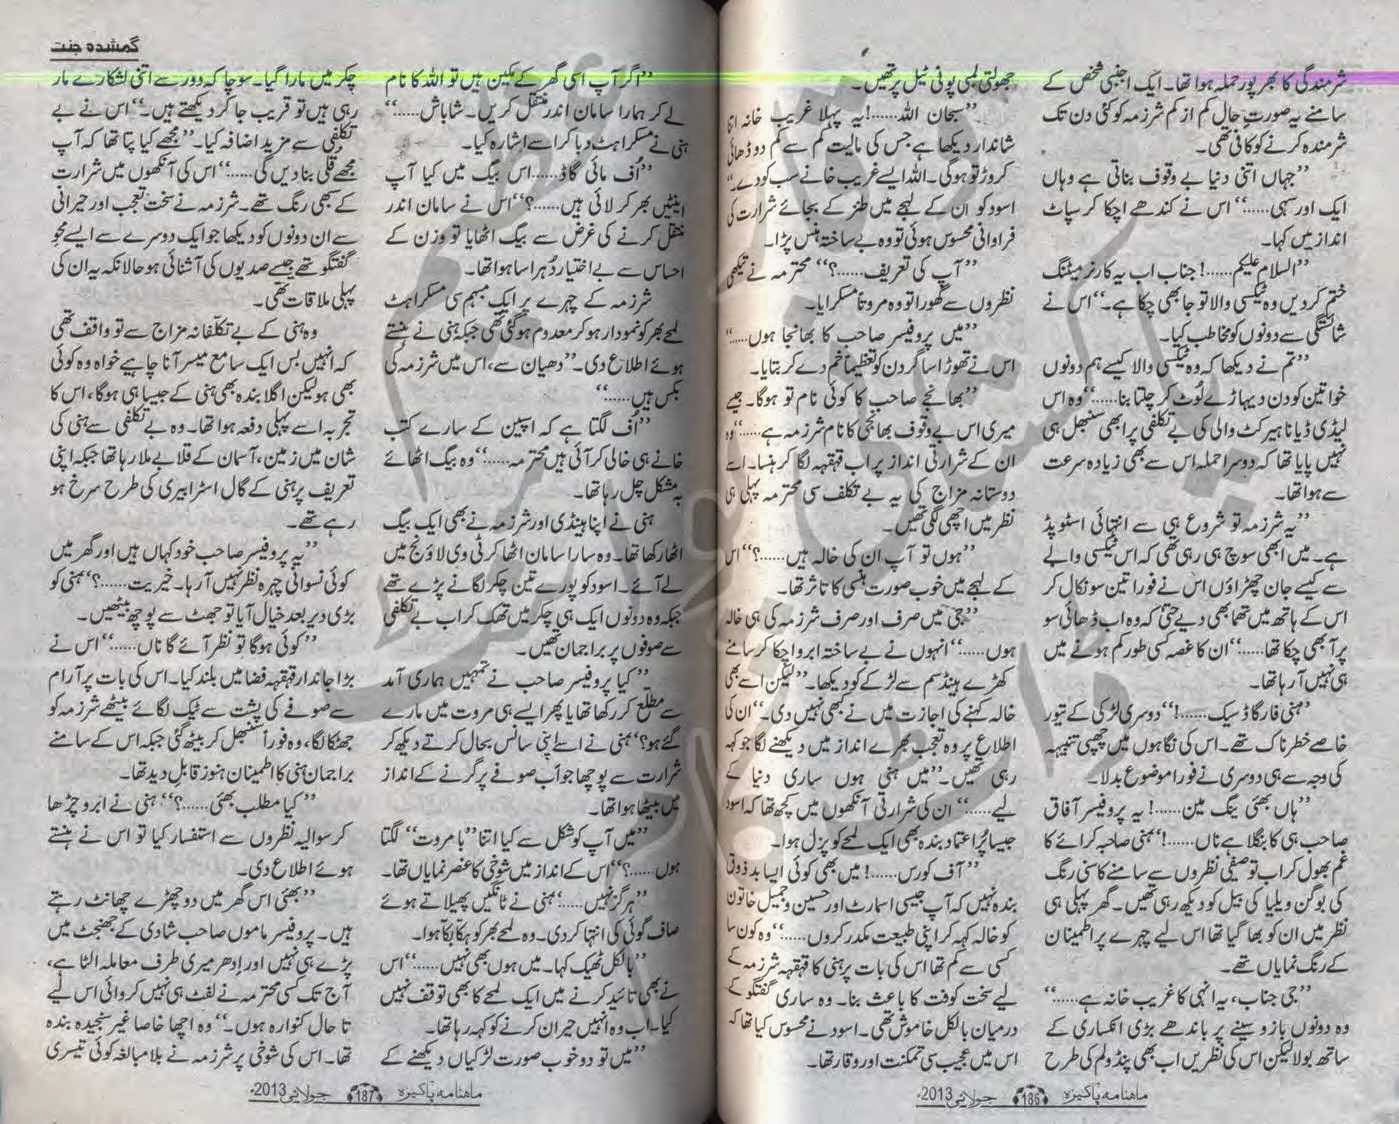 شرمندگی کا بھرپور حملہ ہوا تھا۔ ایک اجنبی شخص کے
سامنے یہ صورتِ حال کم از کم شرزمہ کو کئی دن تک
شرمندہ کرنے کو کافی تھی۔
”جہاں اتنی دنیا بے وقوف بناتی ہے وہاں
ایک اور سہی......“ اس نے کندھے اچکا کر سپاٹ
انداز میں کہا۔
”السلام علیکم......! جناب اب یہ کارنر میٹنگ
ختم کر دیں وہ ٹیکسی والا تو جا بھی چکا ہے۔“ اس نے
شائستگی سے دونوں کو مخاطب کیا۔
”تم نے دیکھا کہ وہ ٹیکسی والا کیسے ہم دونوں
خواتین کو دن دیہاڑے لُوٹ کر چلتا بنا......“ وہ اس
لیڈی ڈیانا ہیئر کٹ والی کی بے تکلفی پر ابھی سنبھل ہی
نہیں پایا تھا کہ دوسرا حملہ اس سے بھی زیادہ سرعت
سے ہوا تھا۔
”یہ شرزمہ تو شروع ہی سے انتہائی اسٹوپڈ
ہے۔ میں ابھی سوچ ہی رہی تھی کہ اس ٹیکسی والے
سے کیسے جان چھڑاؤں اس نے فوراً تین سو نکال کر
اس کے ہاتھ میں تھما بھی دیے حتیٰ کہ وہ اب ڈھائی سو
پر آ بھی چکا تھا......“ ان کا غصہ کسی طور کم ہونے میں
ہی نہیں آ رہا تھا۔
”ہنی فار گاڈ سیک......!“ دوسری لڑکی کے تیور
خاصے خطرناک تھے۔ اس کی نگاہوں میں چھپی تنبیہہ
کی وجہ سے ہی دوسری نے فوراً موضوع بدلا۔
”ہاں بھئی ینگ مین......! یہ پروفیسر آفاق
صاحب ہی کا بنگلا ہے ناں......!“ ہنی صاحبہ کرائے کا
غم بھول کر اب توصیفی نظروں سے سامنے کاسنی رنگ
کی بوگن ویلیا کی بیل کو دیکھ رہی تھیں۔ گھر پہلی ہی
نظر میں ان کو بھا گیا تھا اس لیے چہرے پر اطمینان
کے رنگ نمایاں تھے۔
”جی جناب، یہ انہی کا غریب خانہ ہے......“
وہ دونوں بازو سینے پر باندھے بڑی انکساری کے
ساتھ بولا لیکن اس کی نظریں اب بھی پنڈولم کی طرح
جھولتی لمبی پونی ٹیل پر تھیں۔
”سبحان اللہ......! یہ پہلا غریب خانہ اتنا
شاندار دیکھا ہے جس کی مالیت کم سے کم دو ڈھائی
کروڑ تو ہوگی۔ اللہ ایسے غریب خانے سب کو دے۔“
اسود کو ان کے لہجے میں طنز کے بجائے شرارت کی
فراوانی محسوس ہوئی تو وہ بے ساختہ ہنس پڑا۔
”آپ کی تعریف......؟“ محترمہ نے تیکھی
نظروں سے گھورا تو وہ مروتاً مسکرایا۔
”میں پروفیسر صاحب کا بھانجا ہوں......“
اس نے تھوڑا سا گردن کو تعظیماً خم دے کر بتایا۔
”بھانجے صاحب کا کوئی نام تو ہوگا۔ جیسے
میری اس بے وقوف بھانجی کا نام شرزمہ ہے......“ وہ
ان کے شرارتی انداز پر اب قہقہہ لگا کر ہنسا۔ اسے
دوستانہ مزاج کی یہ بے تکلف سی محترمہ پہلی ہی
نظر میں اچھی لگی تھیں۔
”ہوں تو آپ ان کی خالہ ہیں......؟“ اس
کے لہجے میں خوب صورت ہنسی کا تاثر تھا۔
”جی میں صرف اور صرف شرزمہ کی ہی خالہ
ہوں......“ انہوں نے بے ساختہ ابرو اچکا کر سامنے
کھڑے ہینڈسم سے لڑکے کو دیکھا۔ ”لیکن اسے بھی
خالہ کہنے کی اجازت میں نے بھی نہیں دی۔“ ان کی
اطلاع پر وہ تعجب بھرے انداز میں دیکھنے لگا جو کہہ
رہی تھیں۔ ”میں ہنی ہوں ساری دنیا کے
لیے......“ ان کی شرارتی آنکھوں میں کچھ تھا کہ اسود
جیسا پُراعتماد بندہ بھی ایک لمحے کو پزل ہوا۔
”آف کورس......! میں بھی کوئی ایسا بدذوق
بندہ نہیں کہ آپ جیسی اسمارٹ اور حسین و جمیل خاتون
کو خالہ کہہ کر اپنی طبیعت مکدر کروں......“ وہ کون سا
کسی سے کم تھا اس کی بات پر ہنی کا قہقہہ شرزمہ کے
لیے سخت کوفت کا باعث بنا۔ وہ ساری گفتگو کے
درمیان بالکل خاموش تھی۔ اسود نے محسوس کیا تھا کہ
اس میں عجیب سی تمکنت اور وقار تھا۔
ماھنامه پاکیزہ 186 جولائی 2013ء
گمشدہ جنت
”اگر آپ اسی گھر کے مکین ہیں تو اللہ کا نام
لے کر ہمارا سامان اندر منتقل کریں۔ شاباش......“
ہنی نے مسکراہٹ دبا کر اسے اشارہ کیا۔
”اُف مائی گاڈ......اس بیگ میں کیا آپ
اینٹیں بھر کر لائی ہیں......؟“ اس نے سامان اندر
منتقل کرنے کی غرض سے بیگ اٹھایا تو وزن کے
احساس سے بے اختیار دُہرا سا ہوا تھا۔
شرزمہ کے چہرے پر ایک مبہم سی مسکراہٹ
لمحے بھر کو نمودار ہو کر معدوم ہو گئی تھی جبکہ ہنی نے ہنستے
ہوئے اطلاع دی۔ ”دھیان سے، اس میں شرزمہ کی
بکس ہیں......“
”اُف لگتا ہے کہ اسپین کے سارے کتب
خانے ہی خالی کر آئی ہیں محترمہ......“ وہ بیگ اٹھائے
بہ مشکل چل رہا تھا۔
ہنی نے اپنا ہینڈی اور شرزمہ نے بھی ایک بیگ
اٹھا رکھا تھا۔ وہ سارا سامان اٹھا کر ٹی وی لاؤنج میں
لے آئے۔ اسود کو پورے تین چکر لگانے پڑے تھے
جبکہ وہ دونوں ایک ہی چکر میں تھک کر اب بے تکلفی
سے صوفوں پر براجمان تھیں۔
”کیا پروفیسر صاحب نے تمہیں ہماری آمد
سے مطلع کر رکھا تھا یا پھر ایسے ہی مروت میں مارے
گئے ہو؟“ ہنی نے اسے اپنی سانس بحال کرتے دیکھ کر
شرارت سے پوچھا جو اب صوفے پر گرنے کے انداز
میں بیٹھا ہوا تھا۔
”میں آپ کو شکل سے کیا اتنا ”بامروت“ لگتا
ہوں......؟“ اس کے انداز میں شوخی کا عنصر نمایاں تھا۔
”ہرگز نہیں......“ ہنی نے ٹانگیں پھیلاتے ہوئے
صاف گوئی کی انتہا کر دی۔ وہ لمحے بھر کو ہکا بکا ہوا۔
”بالکل ٹھیک کہا۔ میں ہوں بھی نہیں......“ اس
نے بھی تائید کرنے میں ایک لمحے کا بھی توقف نہیں
کیا۔ اب وہ انہیں حیران کرنے کو کہہ رہا تھا۔
”میں تو دو خوب صورت لڑکیاں دیکھنے کے
چکر میں مارا گیا۔ سوچا کہ دور سے اتنی لشکارے مار
رہی ہیں تو قریب جا کر دیکھتے ہیں۔“ اس نے بے
تکلفی سے مزید اضافہ کیا۔ ”مجھے کیا پتا تھا کہ آپ
مجھے قلی بنا دیں گی......“ اس کی آنکھوں میں شرارت
کے سبھی رنگ تھے۔ شرزمہ نے سخت تعجب اور حیرانی
سے ان دونوں کو دیکھا جو ایک دوسرے سے ایسے محوِ
گفتگو تھے جیسے صدیوں کی آشنائی ہو حالانکہ یہ ان کی
پہلی ملاقات تھی۔
وہ ہنی کے بے تکلفانہ مزاج سے تو واقف تھی
کہ انہیں بس ایک سامع میسر آنا چاہیے خواہ وہ کوئی
بھی ہو لیکن اگلا بندہ بھی ہنی کے جیسا ہی ہوگا، اس کا
تجربہ اسے پہلی دفعہ ہوا تھا۔ وہ بے تکلفی سے ہنی کی
شان میں زمین، آسمان کے قلابے ملا رہا تھا جبکہ اپنی
تعریف پر ہنی کے گال اسٹرابیری کی طرح سرخ ہو
رہے تھے۔
”یہ پروفیسر صاحب خود کہاں ہیں اور گھر میں
کوئی نسوانی چہرہ نظر نہیں آ رہا۔ خیریت......؟“ ہنی کو
بڑی دیر بعد خیال آیا تو جھٹ سے پوچھ بیٹھیں۔
”کوئی ہوگا تو نظر آئے گا ناں......“ اس نے
بڑا جاندار قہقہہ فضا میں بلند کیا۔ اس کی بات پر آرام
سے صوفے کی پشت سے ٹیک لگائے بیٹھے شرزمہ کو
جھٹکا لگا، وہ فوراً سنبھل کر بیٹھ گئی جبکہ اس کے سامنے
براجمان ہنی کا اطمینان ہنوز قابلِ دید تھا۔
”کیا مطلب بھئی......؟“ ہنی نے ابرو چڑھا
کر سوالیہ نظروں سے استفسار کیا تو اس نے ہنستے
ہوئے اطلاع دی۔
”بھئی اس گھر میں دو چھڑے چھانٹ رہتے
ہیں۔ پروفیسر ماموں صاحب شادی کے جھنجٹ میں
پڑے ہی نہیں اور اِدھر میری طرف معاملہ الٹا ہے،
آج تک کسی محترمہ نے لفٹ ہی نہیں کروائی اس لیے
تاحال کنوارہ ہوں۔“ وہ اچھا خاصا غیر سنجیدہ بندہ
تھا۔ اس کی شوخی پر شرزمہ نے بلامبالغہ کوئی تیسری
ماھنامه پاکیزہ 187 جولائی 2013ء